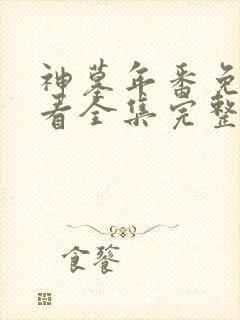 神墓年番免
看全集完整
食饕